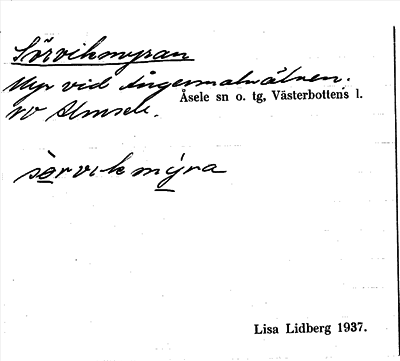 Sörvikmyran
Myr vid Ångermanälven.
Åsele sn o. tg, Västerbottens l.
NV Almsele.
sèrvikmýra
Lisa Lidberg 1937.